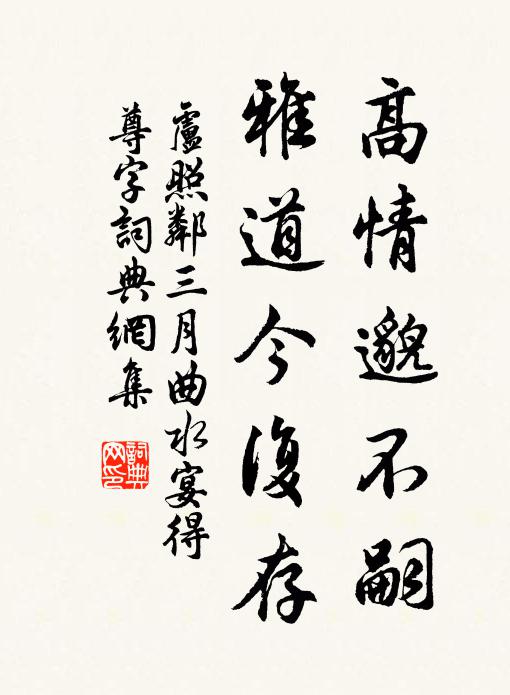 高情邈不嗣
雅道今復存
盧照鄰三月曲水宴得
尊字詞典網集
詞典
网印